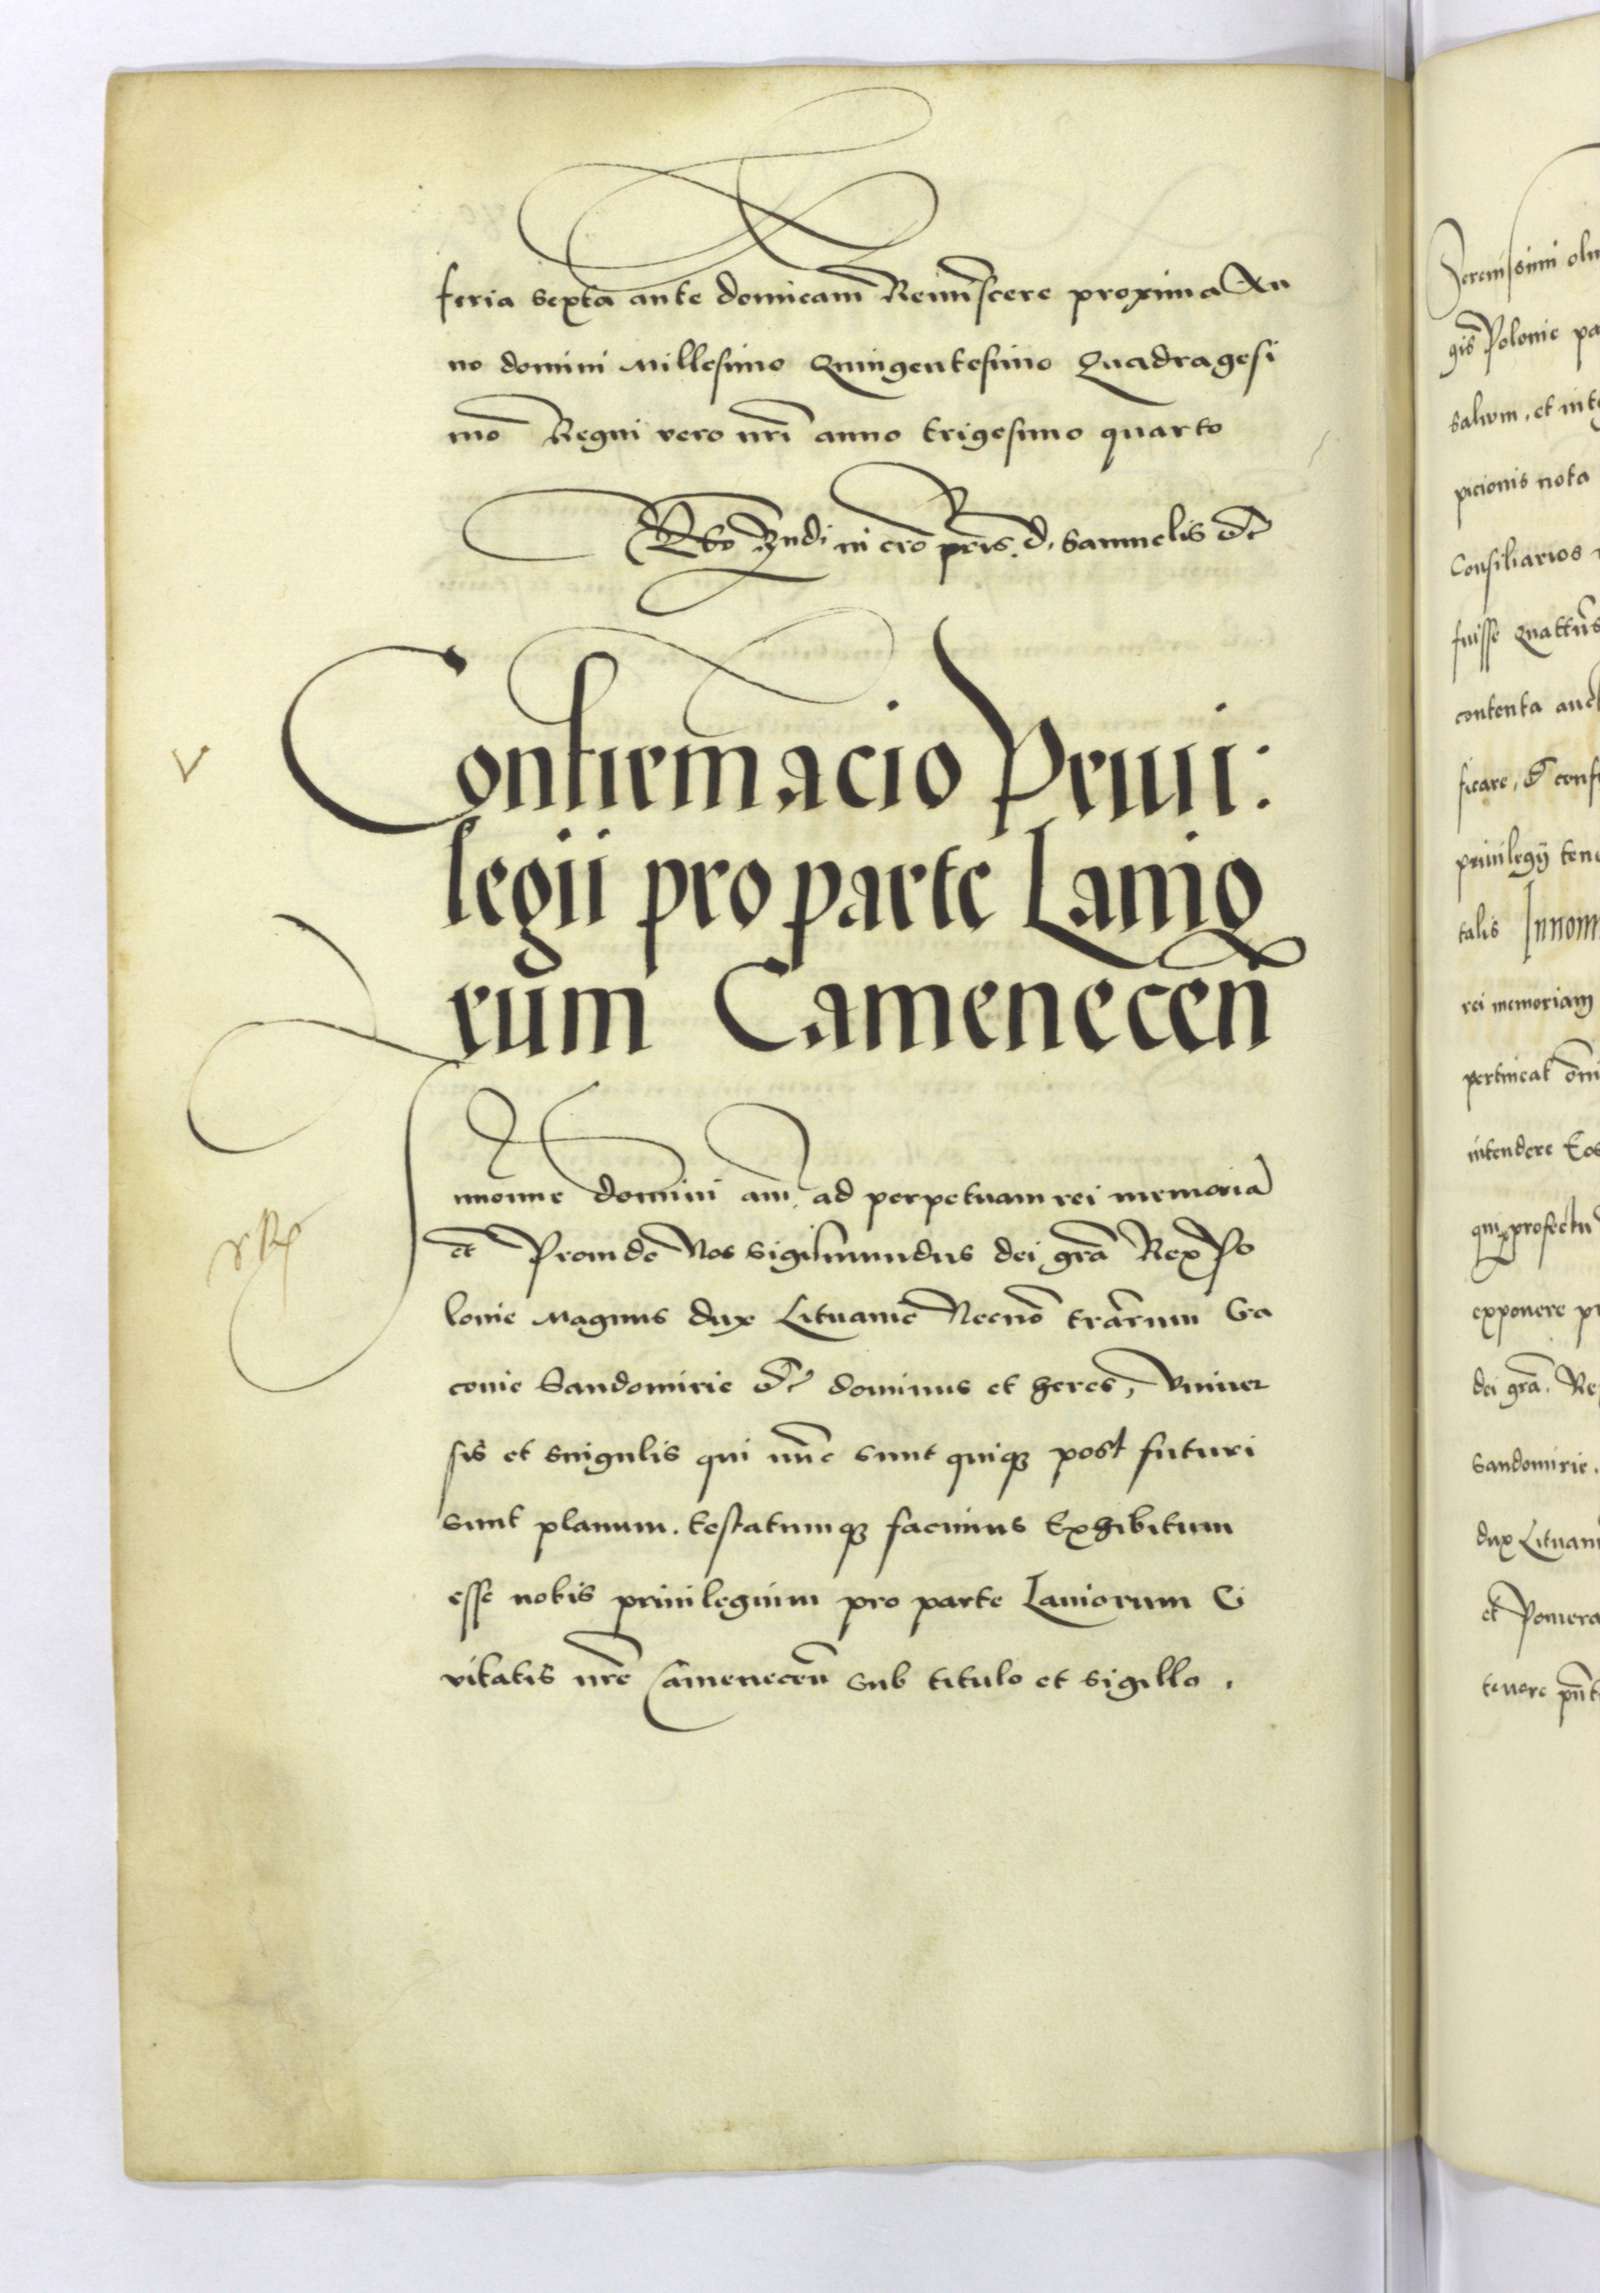 feria sexta ante domicam Reminiscere proxima An
no domini Millesimo Quingentesimo Quadragesi
mo Regni vero nri anno trigesimo quarto
Rlo eiusdi in ero prris. d. Samuelis etc
Confirmacio Priui:
legii pro parte Lanio
rum Camenecen
v
In nomine domini am. ad perpetuam rei memoria
et Proinde Nos Sigismundus dei gra Rex Po
lonie Magnus dux Lituanie Necno trarum Cra
couie Sandomirie etc dominus et heres, Vniuer
sis et singulis qui nunc sunt quiq post futuri
sunt planum. testatumq facimus Exhibitum
esse nobis priuilegium pro parte Laniorum Ci
vitatis nre Camenecen sub titulo et sigillo.
Serenissimi
gis Polonie
saluum, et
picionis nota
Consiliarios
fuisse
contenta
ficare, et
priuilegij
talis
rei memoriam
pertineat
intendere
profectu
exponere
dei gra. Re
Sandomirie.
dux Lituani
et Pomera
tenore